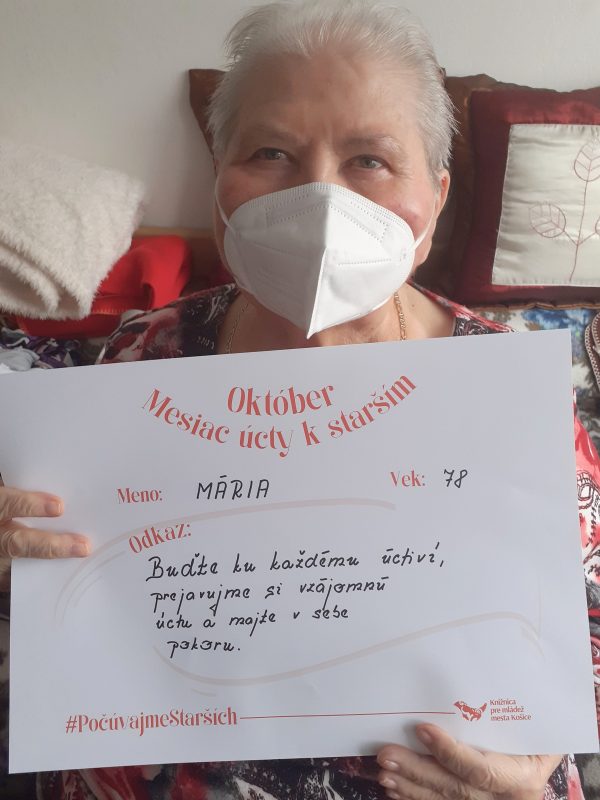 Október
Mesiac úcty k starším
Meno: MÁRIA Vek: 78
Odkaz:
Buďte ku každému úctiví,
prejavujme si vzájomnú
úctu a majte v sebe
pokoru.
#PočúvajmeStarších
Knižnica
pre mládež
mesta Košice